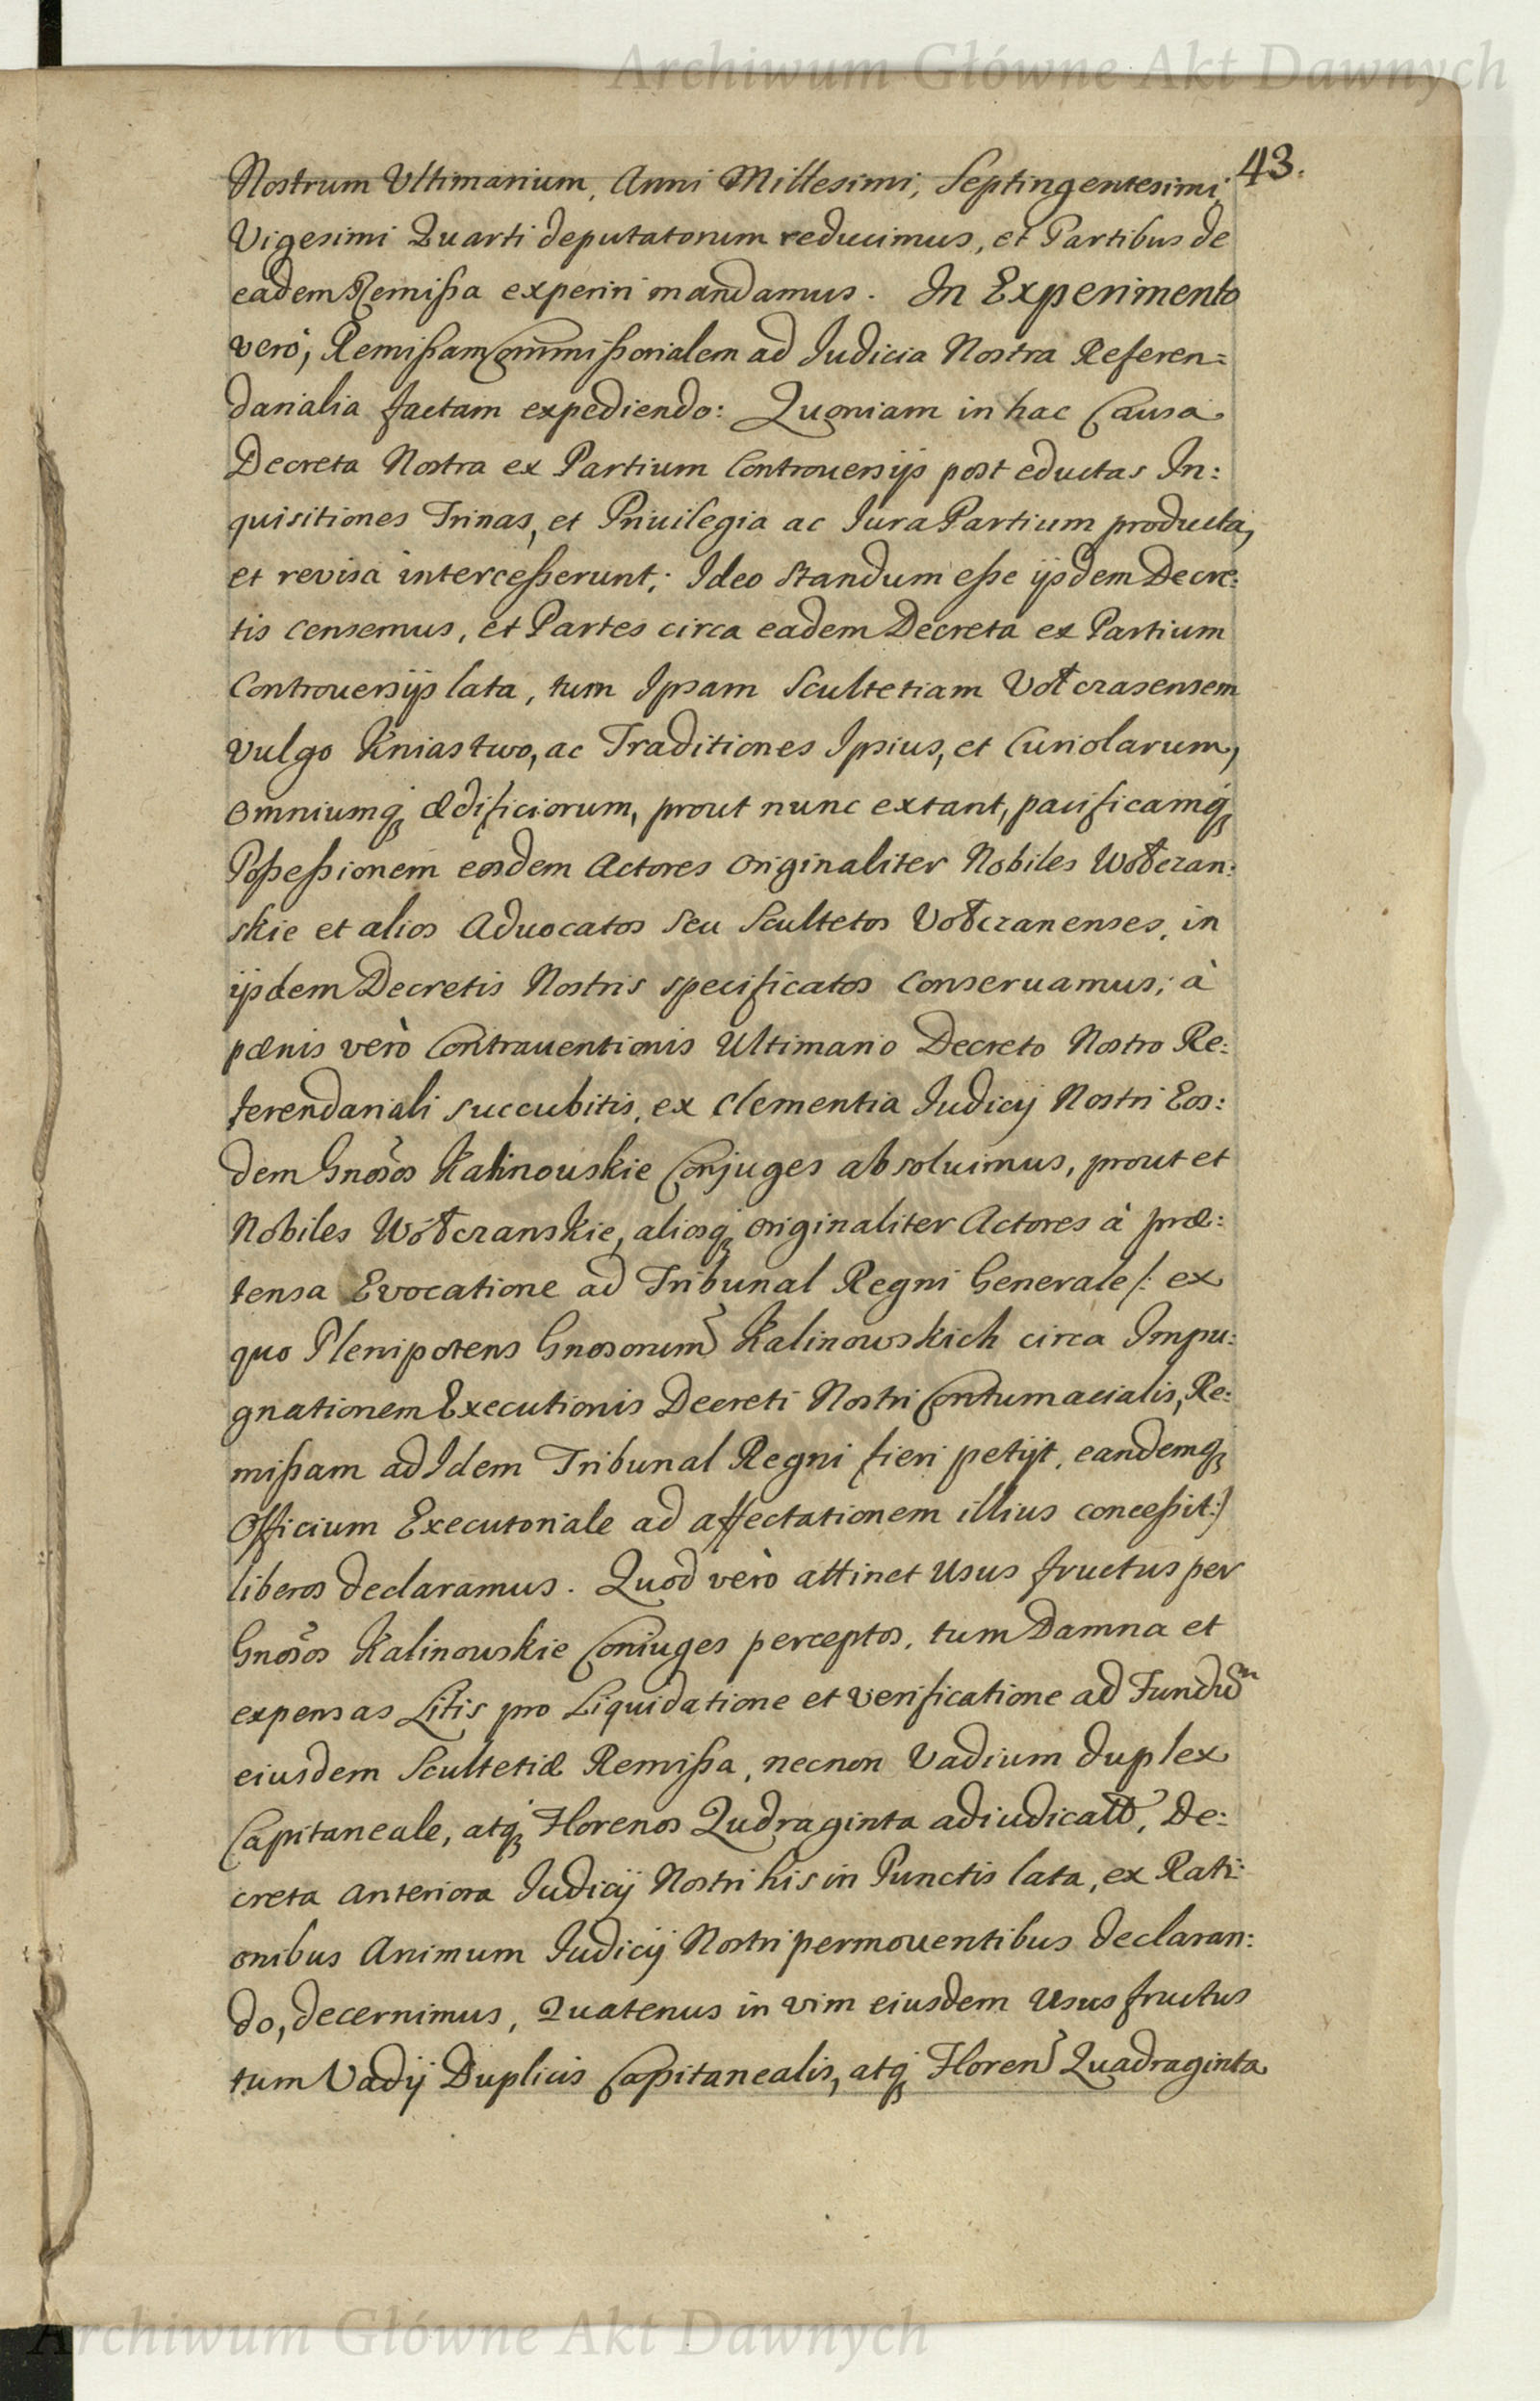 Archiwum Główne Akt Dawnych
43.
Nostrum Ultimarium, Anni Millesimi, Septingentesimi,
Vigesimi Quarti deputatorum reducimus, et Partibus de
eadem Remißa experiri mandamus. In Experimento
verò, Remißam Commißorialem ad Judicia Nostra Referen=
darialia factam expediendo: Quoniam in hac Causa
Decreta Nostra ex Partium Controuersijs post eductas In:
quisitiones Trinas, et Priuilegia ac Iura Partium producta,
et revisa interceßerunt; Ideo standum eße ijsdem Decre:
tis censemus, et Partes circa eadem Decreta ex Partium
Controuersijs lata, tum Ipsam Scultetiam Vołczasensem
vulgo Kniastwo, ac Traditiones Ipsius, et Curiolarum,
omniumq̨ ædificiorum, prout nunc extant, pacificamq̨
Poßeßionem eosdem Actores originaliter Nobiles Wołczan:
skie et alios Aduocatos seu Scultetos Vołczanenses, in
ijsdem Decretis Nostris specificatos conseruamus; à
pœnis verò Contrauentionis Ultimario Decreto Nostro Re:
ferendariali succubitis, ex Clementia Judicij Nostri Eos:
dem Gnosos Kalinouskie Conjuges absoluimus, prout et
Nobiles Wołczanskie, aliosq̨ originaliter Actores à præ:
tensa Evocatione ad Tribunal Regni Generale /: ex
quo Plenipotens Gnosorum Kalinowskich circa Impu:
gnationem Executionis Decreti Nostri Contumacialis, Re:
mißam ad Idem Tribunal Regni fieri petijt, eandemq̨
Officium Executoriale ad affectationem illius conceßit:/
liberos declaramus. Quod verò attinet Usus fructus per
Gnosos Kalinowskie Coniuges perceptos, tum Damna et
expensas Litis pro Liquidatione et verificatione ad Fundũ
eiusdem Scultetiæ Remißa, necnon Vadium duplex
Capitaneale, atq̨ Florenos Qudraginta adiudicata, De:
creta anteriora Judicij Nostri his in Punctis lata, ex Rati:
onibus Animum Judicij Nostri permouentibus declaran:
do, decernimus, Quatenus in vim eiusdem Usus fructus
tum Vadij Duplicis Capitanealis, atq̨ Floren Quadraginta
Archiwum Główne Akt Dawnych